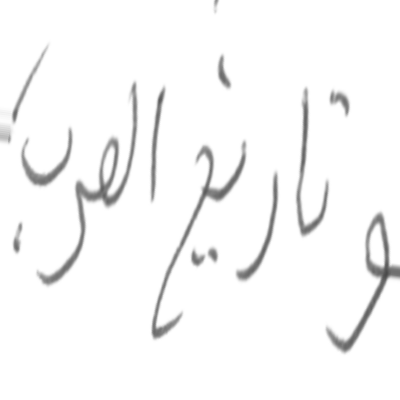 وتاريخ العرب